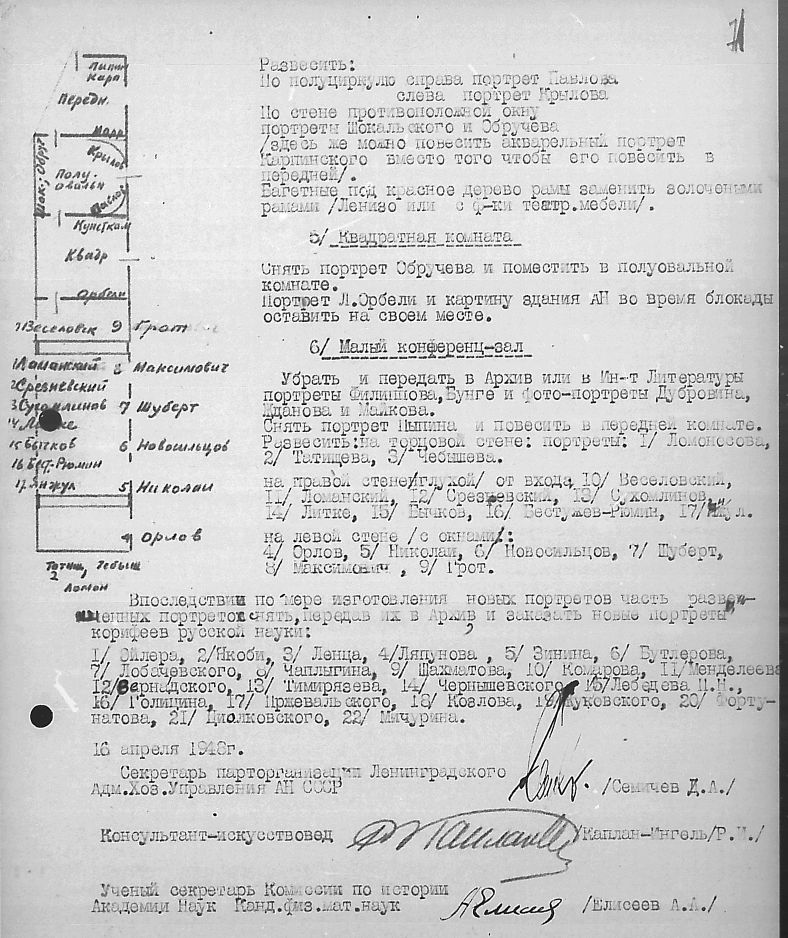 71
Развесить:
По полуциркулю справа портрет Павлова
слева портрет Крылова
По стене противоположной окну
портреты Шокальского и Обручева
/здесь же можно повесить акварельный портрет
Карпинского вместо того чтобы его повесить в
передней/.
Багетные под красное дерево рамы заменить золочеными
рамами /Ленизо или с ф-ки театр.мебели/.
5/ Квадратная комната
Снять портрет Обручева и поместить в полуовальной
комнате.
Портрет Л.Орбели и картину здания АН во время блокады
оставить на своем месте.
6/ Малый конференц-зал
Убрать и передать в Архив или в Ин-т Литературы
портреты Филиппова,Бунге и фото-портреты Дубровина,
Жданова и Майкова.
Снять портрет Пыпина и повесить в передней комнате.
Развесить:на торцовой стене: портреты: 1/ Ломоносова,
2/ Татищева, 3/ Чебышева.
на правой стене/глухой/ от входа 10/ Веселовский,
11/ Ломанский, 12/ Срезневский, 13/ Сухомлинов,
14/ Литке, 15/ Бычков, 16/ Бестужев-Рюмин, 17/ Янжул.
на левой стене /с окнами/:
4/ Орлов, 5/ Николаи, 6/ Новосильцов, 7/ Шуберт,
8/ Максимович , 9/ Грот.
Пыпин
Карп
Передн.
Шок., Обруч
Крылов
Полу-
овальн
Павлов
Кунсткам
Квадр
Орбели
Веселовск 9 Грот
11 Ламанский 8 Максимович
12 Срезневский
13 Сухомлинов 7 Шуберт
14 Литке
15 Бычков 6 Новосильцов
16 Бест-Рюмин
17 Янжул 5 Николаи
4 Орлов
Татищ, Чебыш
2
Ломон
Впоследствии по мере изготовления новых портретов часть разве-
шенных портретов снять,передав их в Архив и заказать новые портреты
корифеев русской науки:
1/ Эйлера, 2/Якоби, 3/ Ленца, 4/Ляпунова , 5/ Зинина, 6/ Бутлерова,
7/ Лобачевского, 8/ Чаплыгина, 9/ Шахматова, 10/ Комарова, 11/Менделеева
12/Вернадского, 13/ Тимирязева, 14/ Чернышевского, 15/Лебедева П.Н.,
16/ Голицина, 17/ Пржевальского, 18/ Козлова, 19/Жуковского, 20/ Форту-
натова, 21/ Циолковского, 22/ Мичурина.
16 апреля 1948г.
Секретарь парторганизации Ленинградского
Адм.Хоз.Управления АН СССР /Семичев Д.А./
Консультант-искусствовед /Каплан-Ингель/Р.И./
Ученый секретарь Комиссии по истории
Академии Наук Канд.физ.мат.наук /Елисеев А.А./